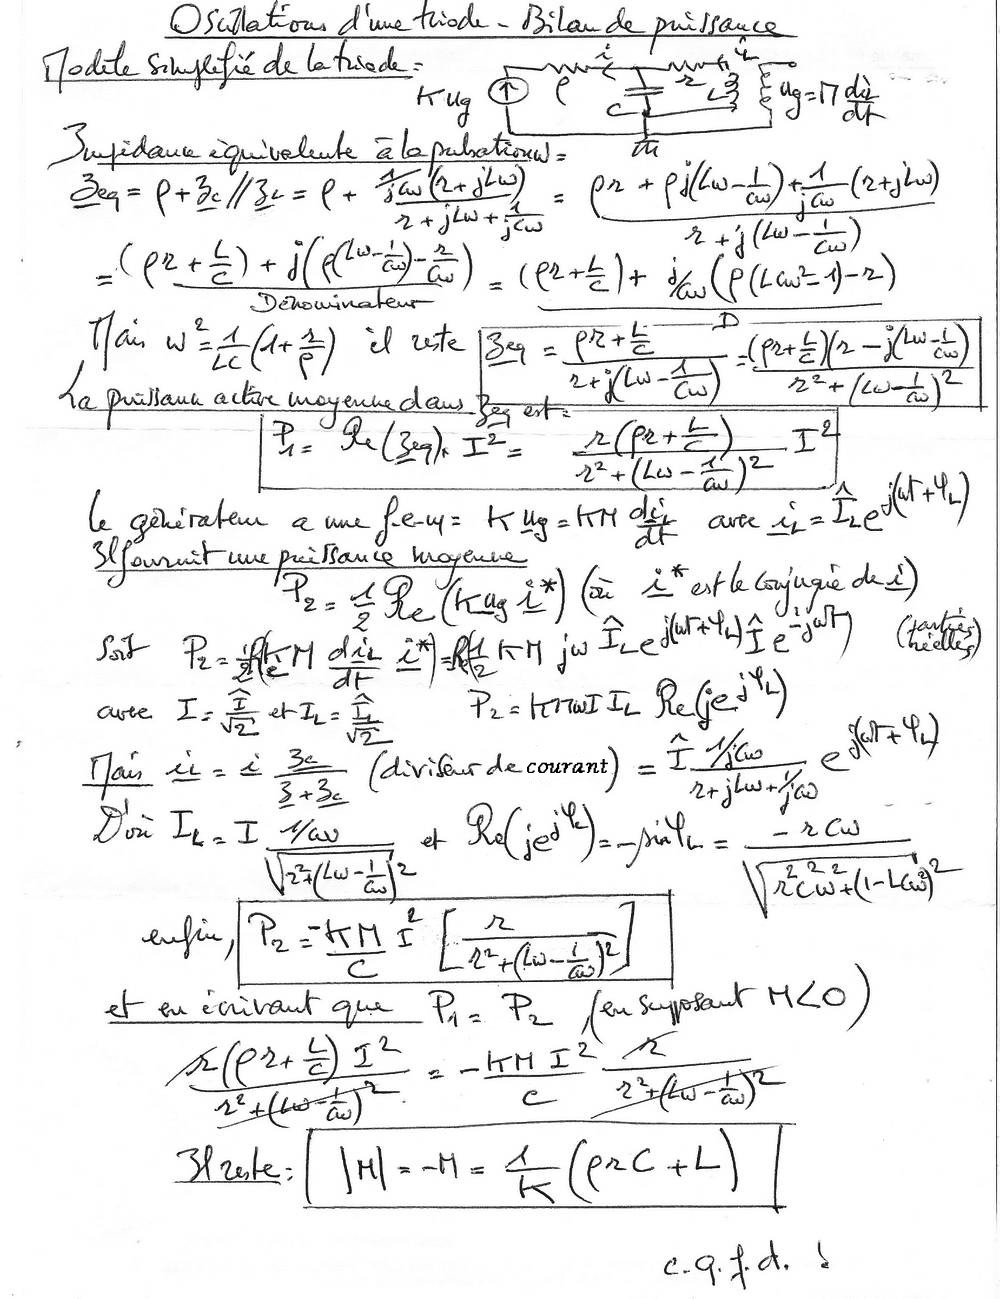 Oscillations d'une triode - Bilan de puissance
Modèle simplifié de la triode =
K ug ρ i C r L iL ug = M diL/dt
Impédance équivalente à la pulsation ω =
Zeq = ρ + Zc // ZL = ρ + (1/jCω (r + jLω)) / (r + jLω + 1/jCω) = (ρr + ρj(Lω - 1/Cω) + 1/jCω (r + jLω)) / (r + j(Lω - 1/Cω))
= ((ρr + L/C) + j(ρ(Lω - 1/Cω) - r/Cω)) / Dénominateur = ((ρr + L/C) + j/Cω (ρ(LCω² - 1) - r)) / D
Mais ω² = 1/LC (1 + r/ρ) il reste Zeq = (ρr + L/C) / (r + j(Lω - 1/Cω)) = (ρr + L/C)(r - j(Lω - 1/Cω) / (r² + (Lω - 1/Cω)²)
La puissance active moyenne dans Zeq est =
P1 = Re(Zeq). I² = r(ρr + L/C) / (r² + (Lω - 1/Cω)²) I²
Le générateur a une f-e-m = K ug = KM diL/dt avec iL = ÎL e^j(ωt + φL)
Il fournit une puissance moyenne
P2 = 1/2 Re (K ug i*) (où i* est le conjugué de i)
Soit P2 = 1/2 Re(KM diL/dt i*) = Re(1/2 KM jω ÎL e^j(ωt + φL) Î e^-jωt) (parties réelles)
avec I = Î/√2 et IL = ÎL/√2 P2 = KMω I IL Re(je^jφL)
Mais iL = i Zc / (Z + Zc) (diviseur de courant) = Î (1/jCω) / (r + jLω + 1/jCω) e^j(ωt + φL)
D'où IL = I (1/Cω) / √(r² + (Lω - 1/Cω)²) et Re(je^jφL) = - sin φL = - rCω / √(r²C²ω² + (1 - LCω²)²)
enfin, P2 = - KM/C I² [r / (r² + (Lω - 1/Cω)²)]
et en écrivant que P1 = P2, (en supposant M<0)
r(ρr + L/C) I² / (r² + (Lω - 1/Cω)²) = - KM I² / C r / (r² + (Lω - 1/Cω)²)
Il reste : |M| = -M = 1/K (ρrC + L)
c.q.f.d. !